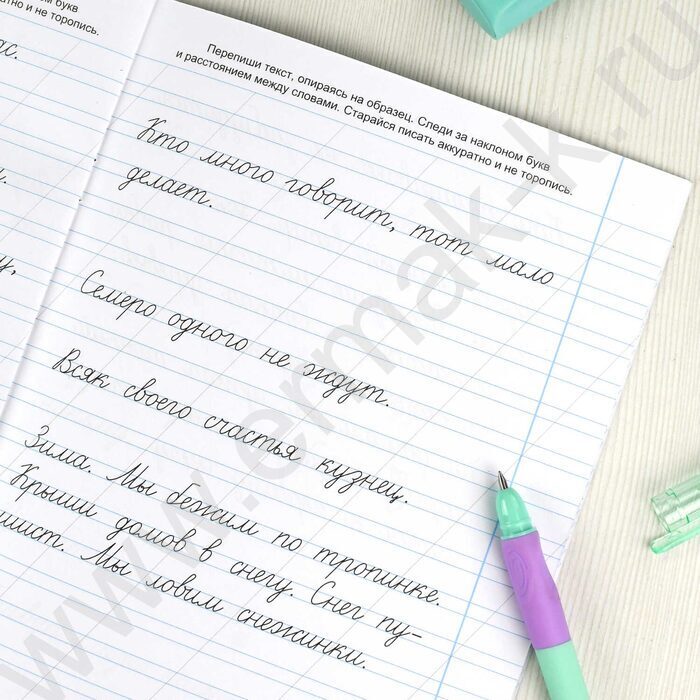 м букв
атно и не торопись.
ас.
и.
у,
Перепиши текст, опираясь на образец. Следи за наклоном букв
и расстоянием между словами. Старайся писать аккуратно и не торопись.
Кто много говорит, тот мало
делает.
Семеро одного не ждут.
Всяк своего счастья кузнец.
Зима. Мы бежим по тропинке.
Крыши домов в снегу. Снег пу-
шист. Мы ловим снежинки.
www.ermak-k.ru